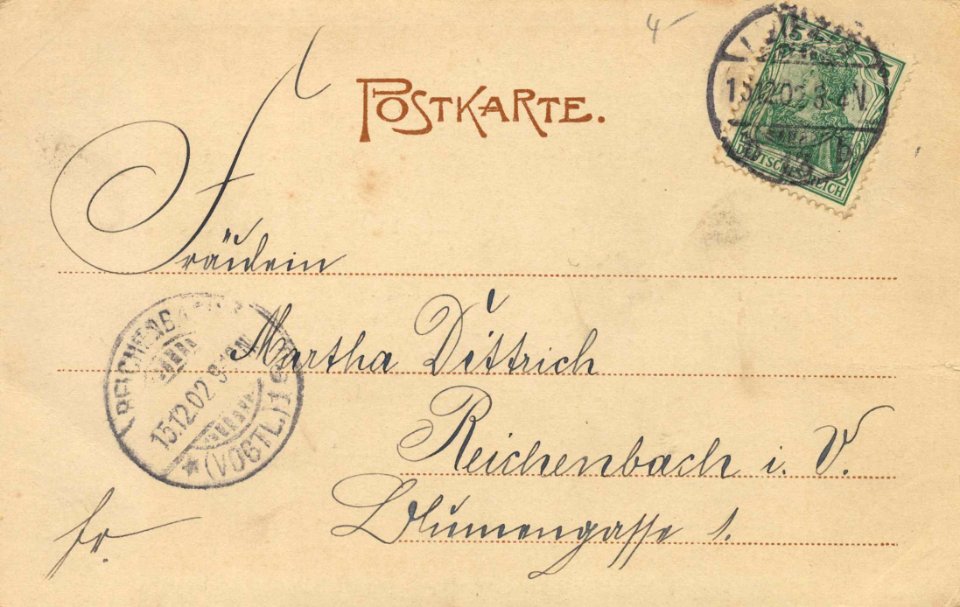 4-
POSTKARTE.
DEUTSCHES REICH
Fräulein
Martha Dittrich
Reichenbach i. V.
Blumengasse 1.
fr.
REICHENBACH
15.12.02
(VOGTL.) 1